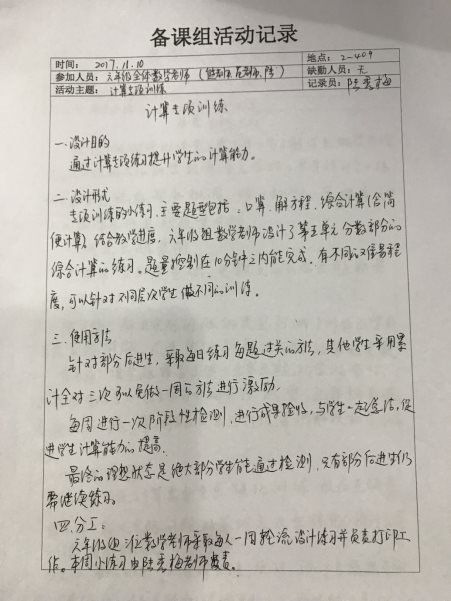 备课组活动记录
时间: 2017.11.10 地点: 2-409
参加人员: 六年级全体数学老师 缺勤人员: 无
活动主题: 计算专项训练 记录员: 陆秀梅
计算专项训练
一、设计目的
通过计算专项练习提升学生的计算能力。
二、设计形式
专项训练的小练习,主要题型包括:口算、解方程、综合计算(含简
便计算)。结合教学进度,六年级组数学老师设计了第五单元分数部分的
综合计算的练习。题量控制在10分钟之内能完成,有不同的难易程
度,可以针对不同层次学生做不同的训练。
三、使用方法
针对部分后进生,采取每日练习每题过关的方法,其他学生采用累
计全对三次可以免做一周的方法进行激励。
每周进行一次阶段性检测,进行成果验收,与学生一起总结,促
进学生计算能力的提高。
最终的理想状态是绝大部分学生能通过检测,只有部分后进生仍
需继续练习。
四、分工:
六年级组数学老师采取每人一周轮流设计练习并负责打印工
作。本周小练习由陆秀梅老师负责。